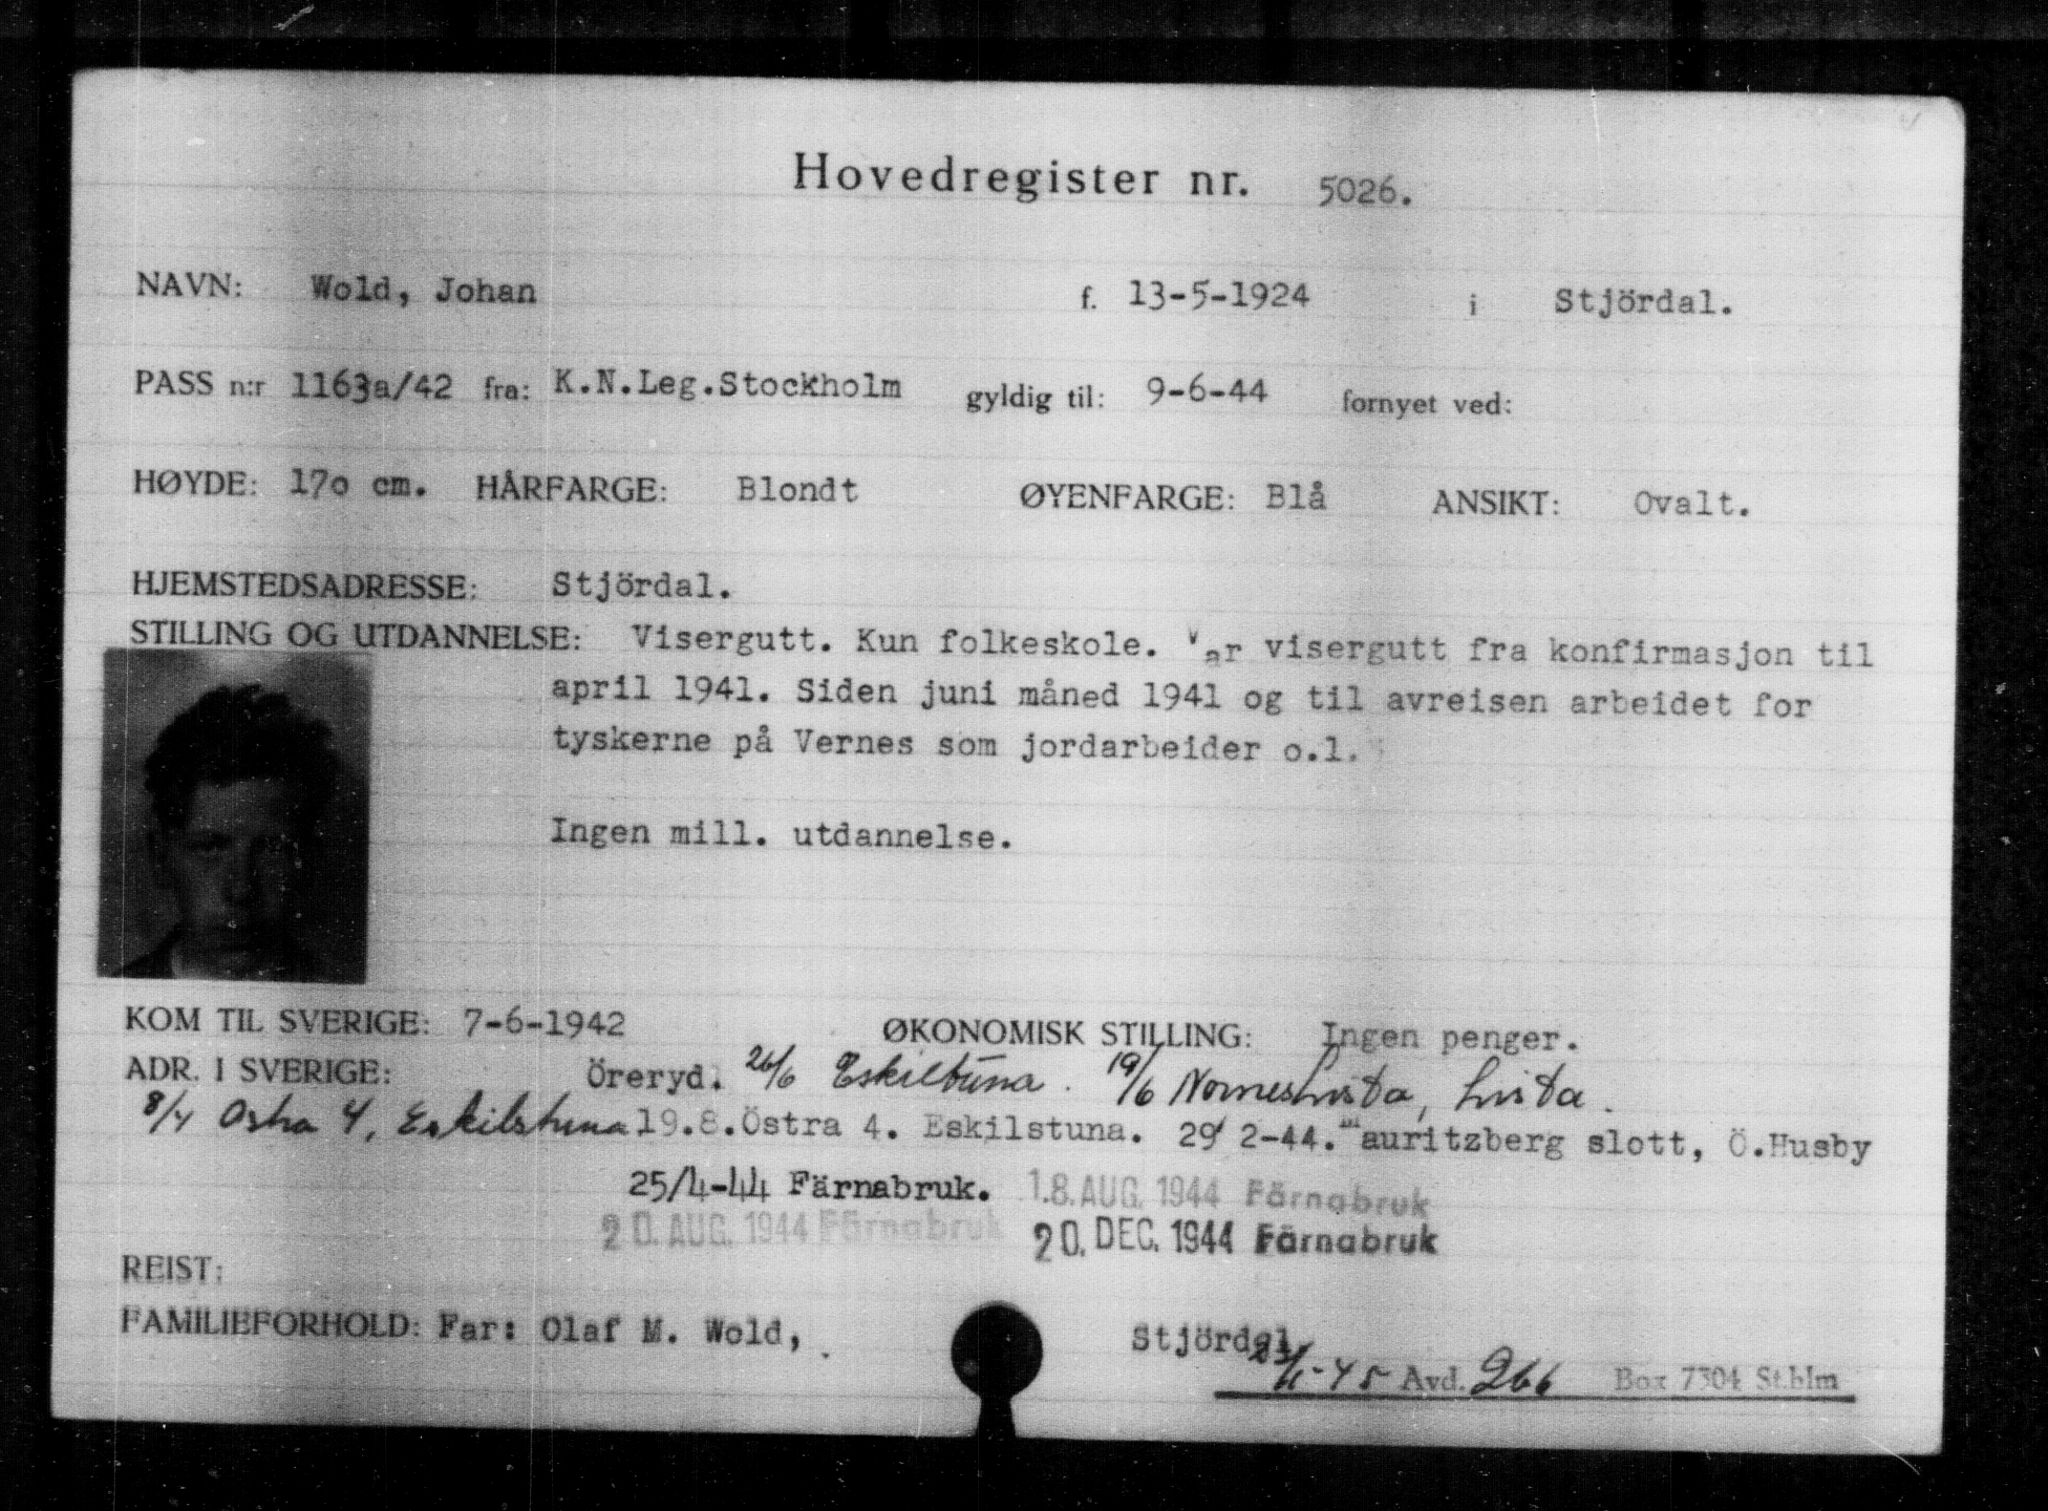 Hovedregister nr. 5026.
NAVN: Wold, Johan f. 13-5-1924 i Stjördal.
PASS n:r 1163a/42 fra: K.N.Leg.Stockholm gyldig til: 9-6-44 fornyet ved:
HØYDE: 17o cm. HÅRFARGE: Blondt ØYENFARGE: Blå ANSIKT: Ovalt.
HJEMSTEDSADRESSE: Stjördal.
STILLING OG UTDANNELSE: Visergutt. Kun folkeskole. Var visergutt fra konfirmasjon til
april 1941. Siden juni måned 1941 og til avreisen arbeidet for
tyskerne på Vernes som jordarbeider o.l.
Ingen mill. utdannelse.
KOM TIL SVERIGE: 7-6-1942 ØKONOMISK STILLING: Ingen penger.
ADR. I SVERIGE: Öreryd. 26/6 Eskiltuna. 19/6 Lista.
Östra 4, Eskilstuna 19.8.Östra 4. Eskilstuna. 29 2-44. Mauritzberg slott, Ö.Husby
25/4-44 Färnabruk. 18. AUG. 1944 Färnabruk
20. AUG. 1944 Färnabruk 20. DEC. 1944 Färnabruk
REIST:
FAMILIEFORHOLD: Far: Olaf M. Wold, Stjördal
-45 Avd. 266 Box 7304 St.hlm